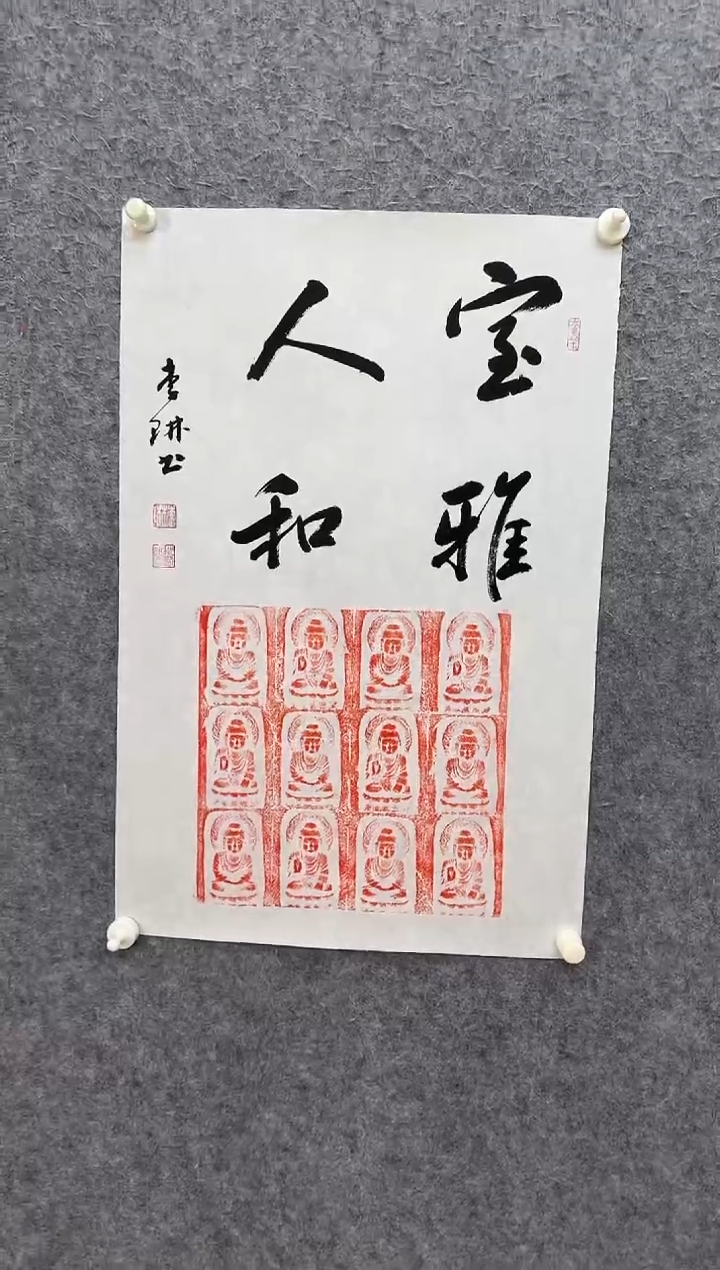 室雅
人和
李琳书